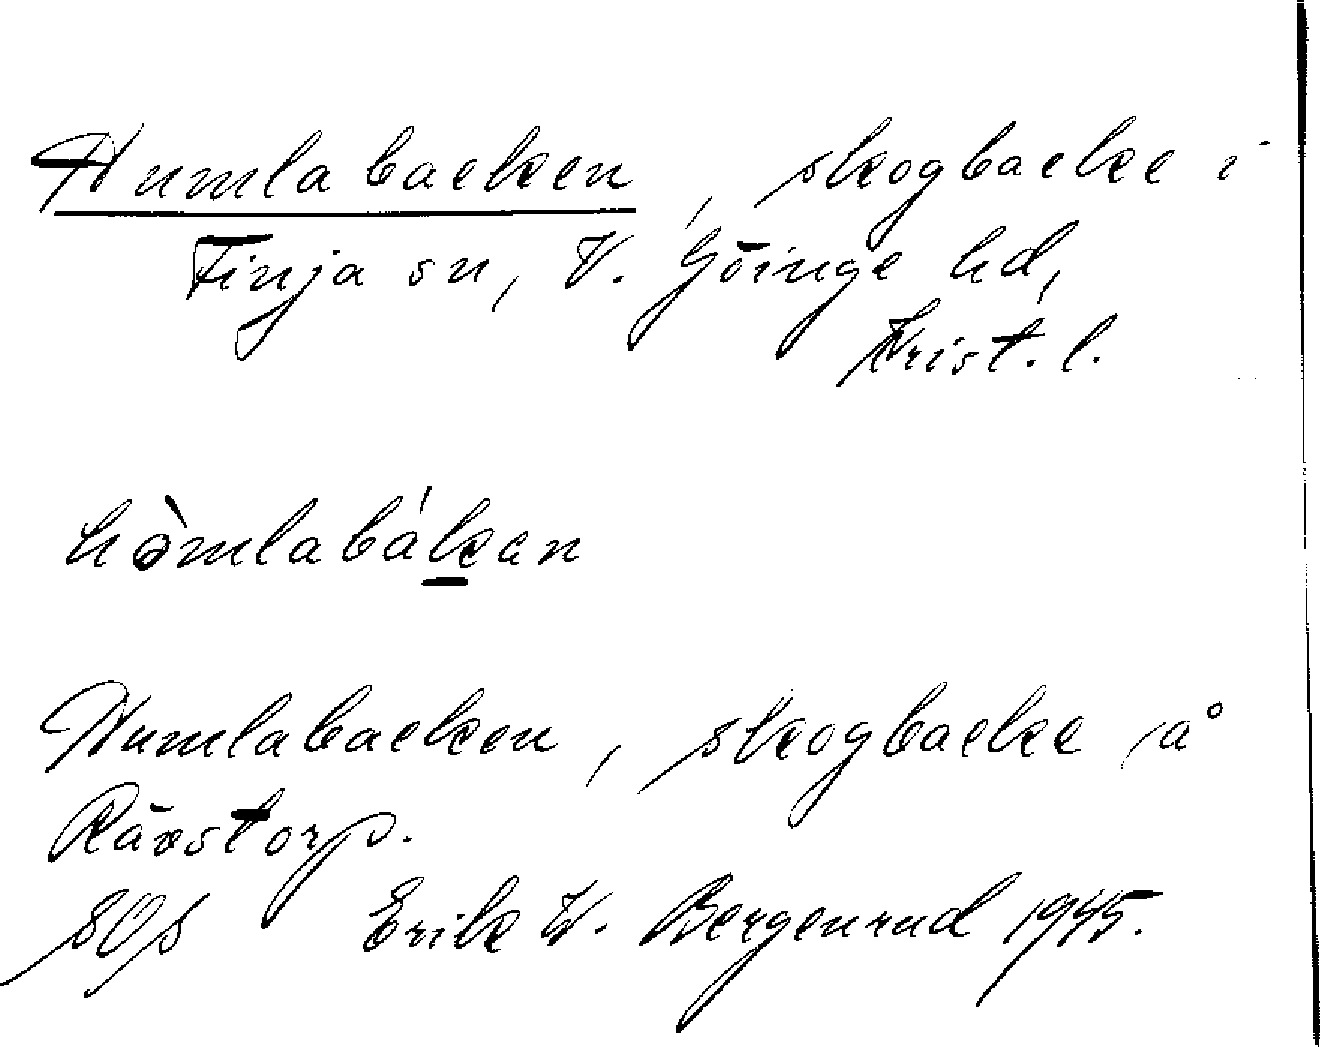 Humlabacken, skogbacke i
Finja sn, V. Göinge hd,
Krist. l.
hòmlabákan
Humlabacken, skogbacke å
Rävstorp.
Erik W. Bergenrud 1945.